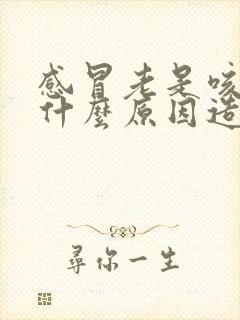 感冒老是咳
什麼原因造
尋你一生